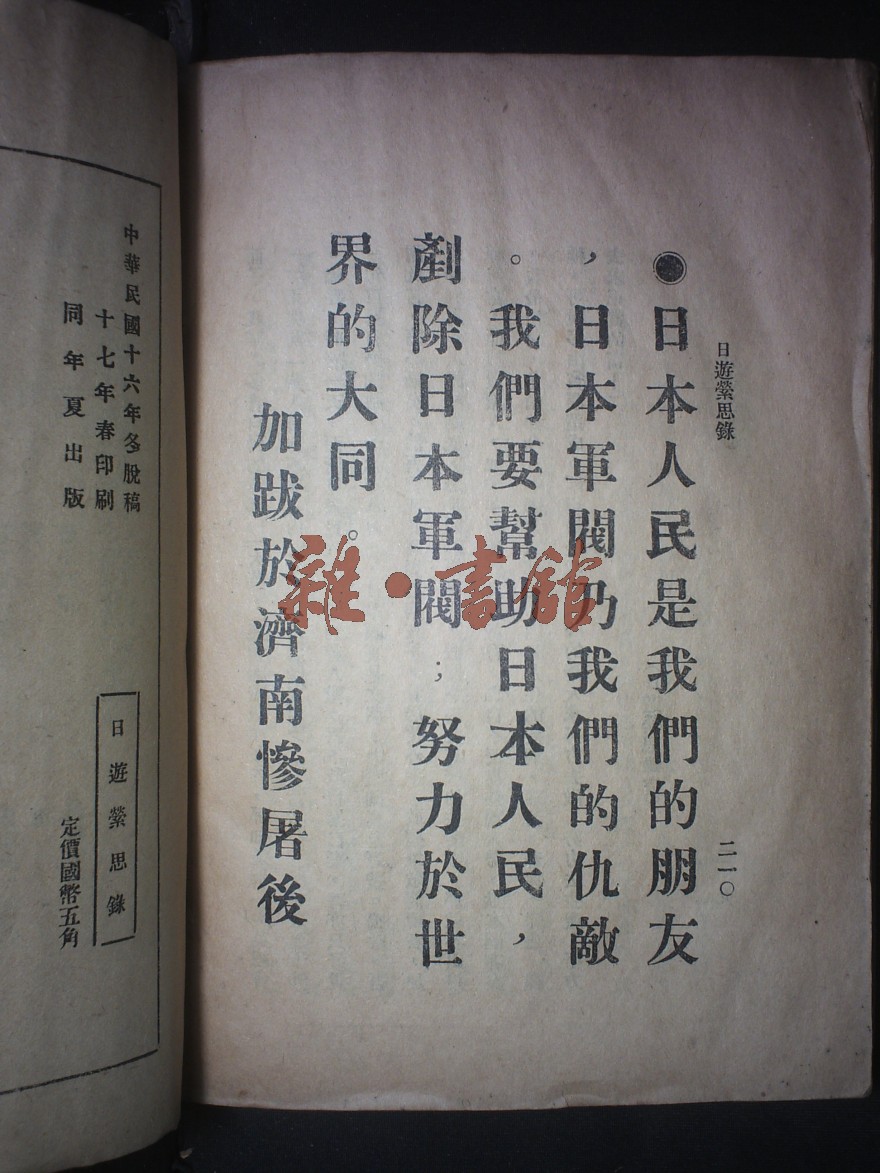 日遊縈思錄
二一〇
●日本人民是我們的朋友
，日本軍閥乃我們的仇敵
。我們要幫助日本人民，
剷除日本軍閥；努力於世
界的大同。
加跋於濟南慘屠後
雜·書館
中華民國十六年冬脫稿
十七年春印刷
同年夏出版
日遊縈思錄
定價國幣五角